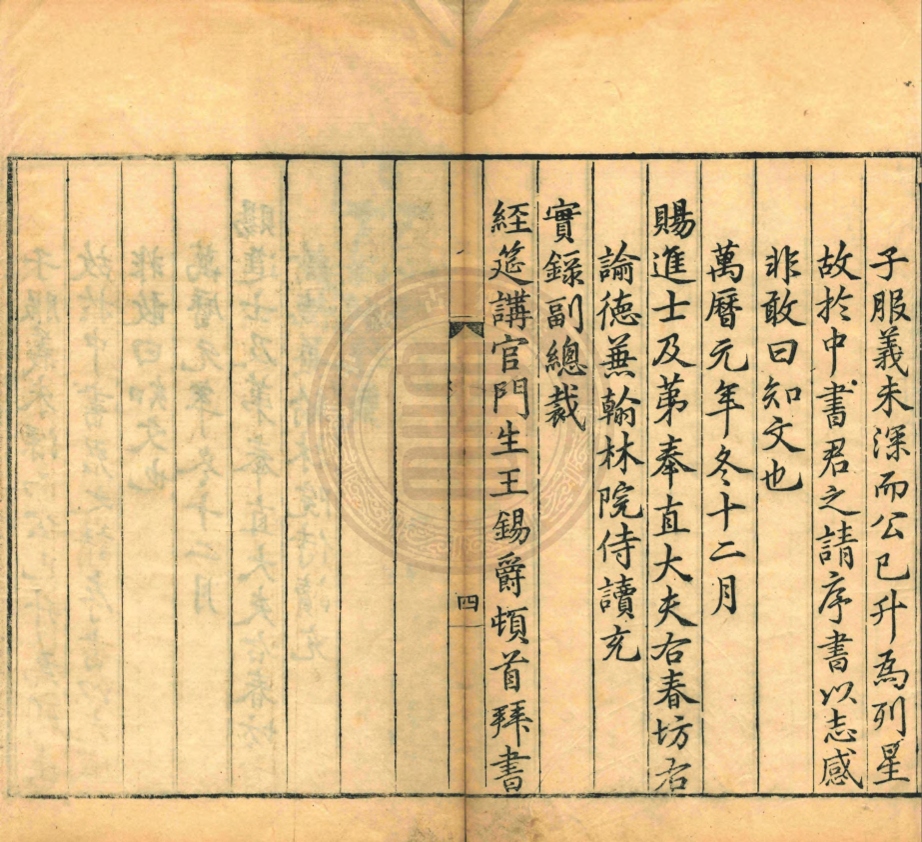 子服義未深而公已升為列星
故於中書君之請序書以志感
非敢曰知文也
萬曆元年冬十二月
賜進士及第奉直大夫右春坊右
諭德兼翰林院侍讀充
實錄副總裁
經筵講官門生王錫爵頓首拜書
四